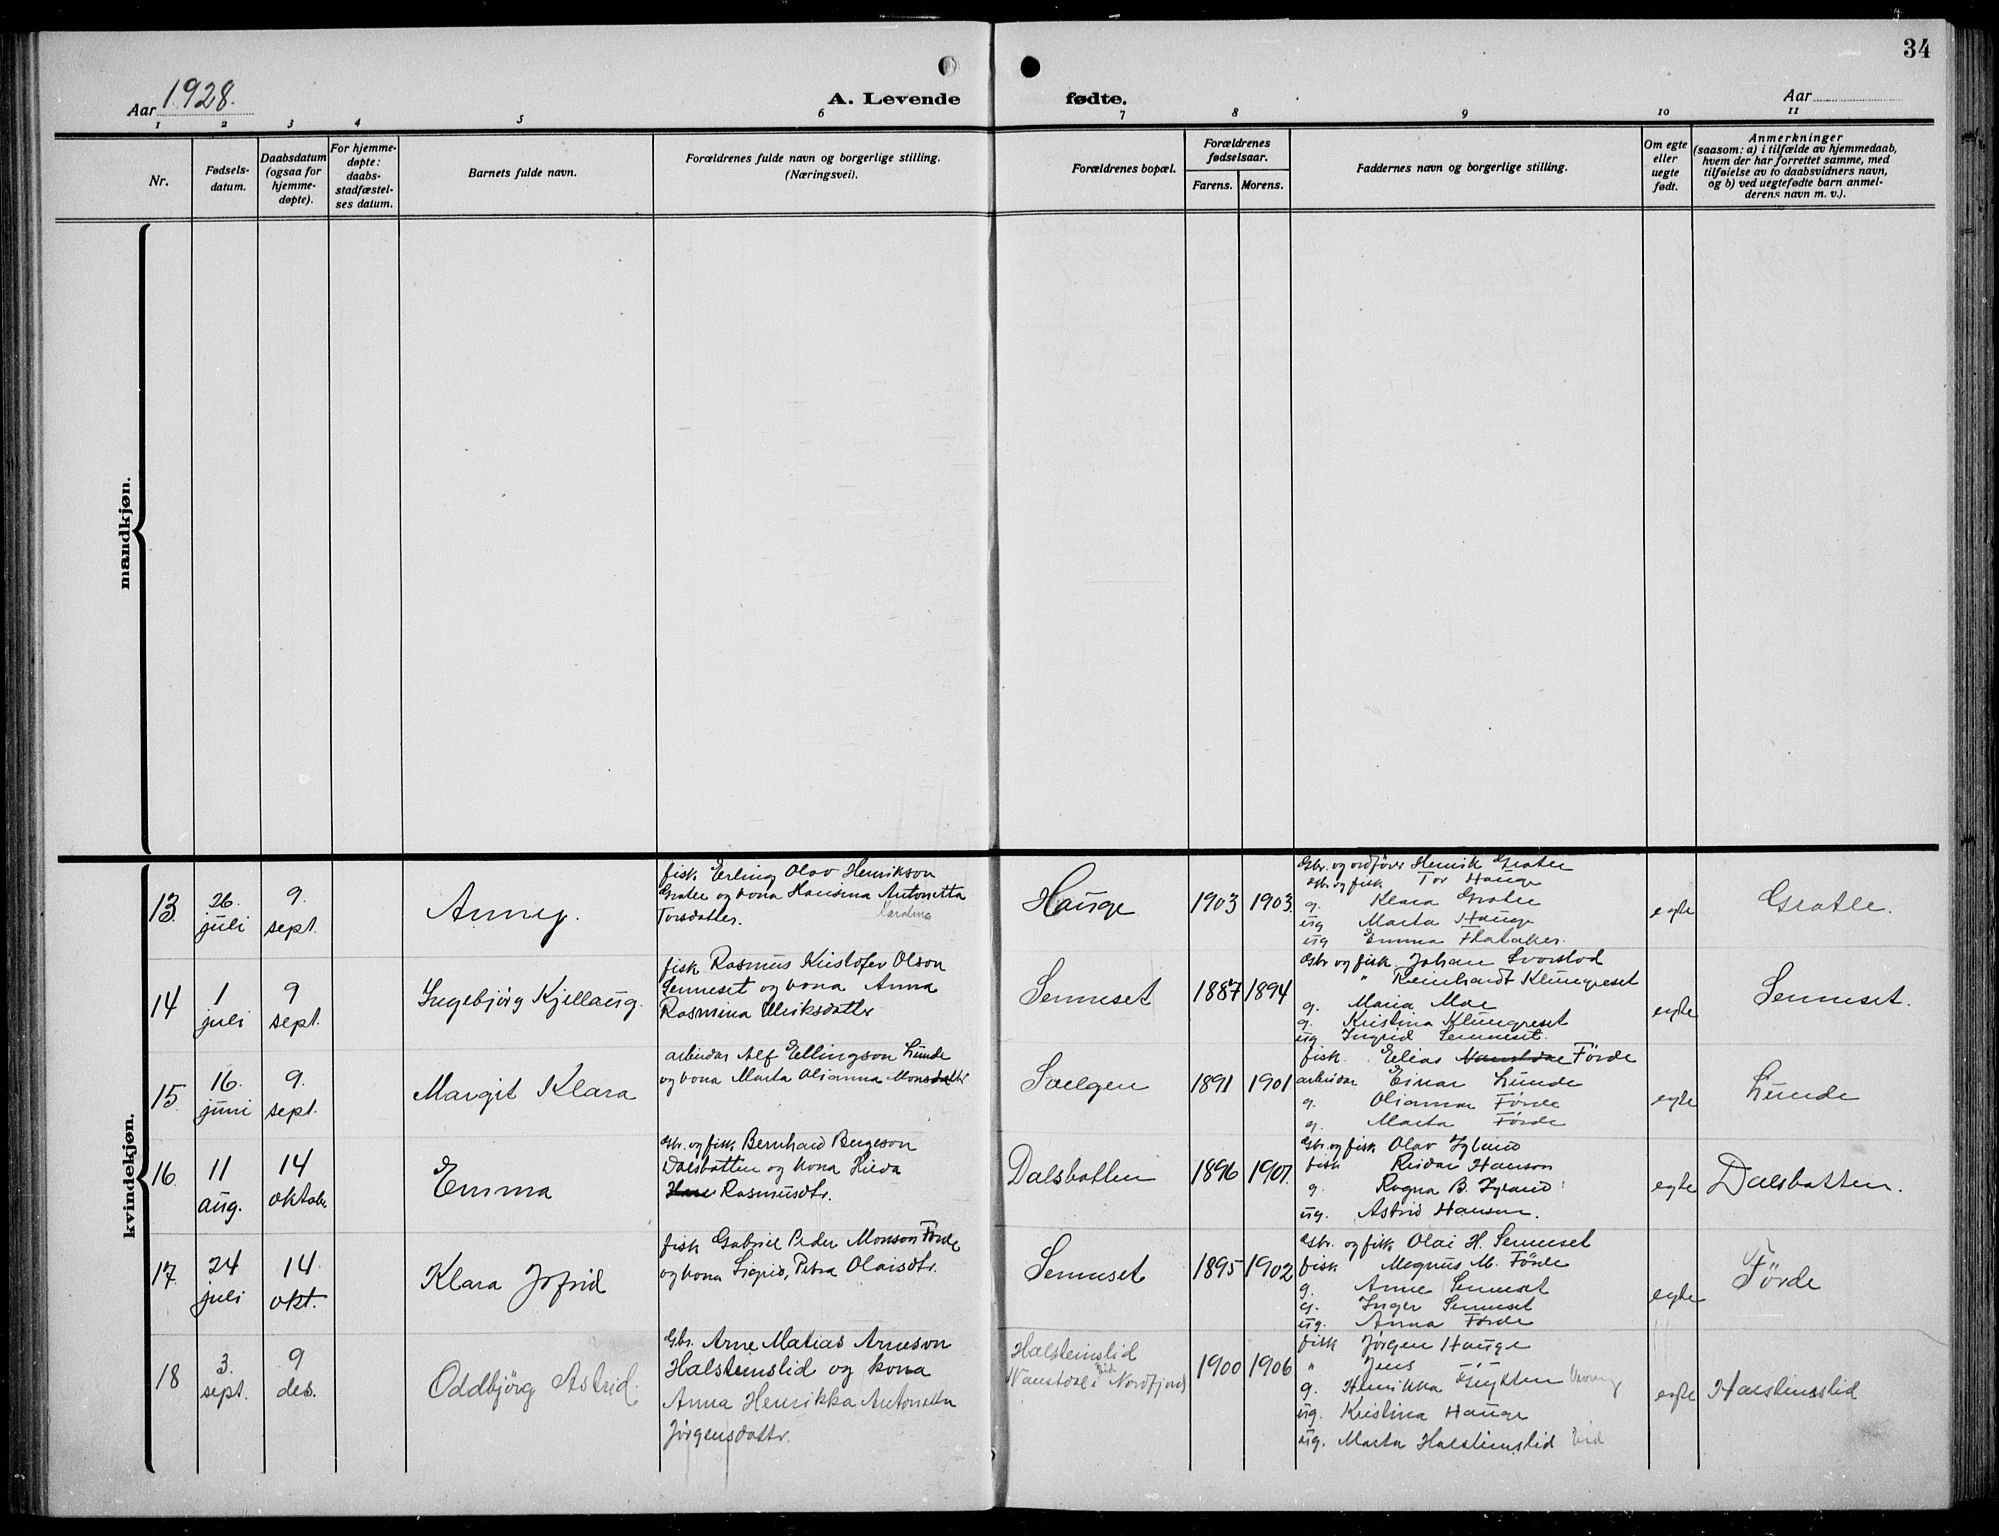 34
Aar 1928.
A. Levende fødte.
Aar
1 2 3 4 5 6 7 8 9 10 11
Nr.
Fødsels-
datum.
Daabsdatum
(ogsaa for
hjemme-
døpte).
For hjemme-
døpte:
daabs-
stadfæstel-
ses datum.
Barnets fulde navn.
Forældrenes fulde navn og borgerlige stilling.
(Næringsvei).
Forældrenes bopæl.
Forældrenes
fødselsaar.
Farens. Morens.
Faddernes navn og borgerlige stilling.
Om egte
eller
uegte
født.
Anmerkninger
(saasom: a) i tilfælde av hjemmedaab,
hvem der har forrettet samme, med
tilføielse av to daabsvidners navn,
og b) ved uegtefødte barn anmel-
derens navn m. v.).
mandkjøn.
kvindekjøn.
13
26.
juli
9.
sept.
Anny.
fisk Erling Olav Henrikson
Grotle og kona Hansina Antonetta
Torsdatter.
Hauge
1903
1903.
Gbr. og ordfører Henrik Grotle
Gbr og fisk Tor Hauge
g. Klara Grotle
ug Marta Hauge
ug Emma
egte
Grotle.
14
1
juli
9
sept.
Ingebjørg Kjellaug.
fisk Rasmus Kristofer Olson
Senneset og kona Anna
Rasmina Ulriksdatter
Senneset
1887
1894
Gbr og fisk. Johan
" Reinhardt Klungreset
g. Maria Mae
g. Kristina Klungreset
ug Ingrid Senneset.
egte
Senneset.
15
16.
juni
9.
sept.
Margit Klara
arbeidar Alf Ellingson Lunde
og kona Marta Olianna Monsdatter
Svelgen
1891
1901
fisk. Elias Førde
arbeidar Einar Lunde
g. Olianna Førde
g. Marta Førde
egte
Lunde
16.
11
aug.
14
oktober
Emma
Gbr. og fisk. Bernhard Bergeson
Dalsbotten og kona Hilda
Rasmusdtr.
Dalsbotten
1896
1907.
Gbr. og fisk Olav Hyland
fisk Reidar Hanson
g. Ragna B. Hyland
ug. Astrid Hansen.
egte
Dalsbotten.
17.
24
juli
14.
okt.
Klara Jofrid
fisk Gabriel Peder Monson Førde
og kona Sigrid, Petra Olaisdtr.
Senneset
1895
1902
Gbr. og fisk Olai H. Senneset
fisk Magnus M. Førde
g. Anne Senneset
g. Inger Senneset
ug. Anna Førde
egte
Førde
18
3.
sept.
9
des.
Oddbjørg Astrid.
Gbr. Arne Matias Arneson
Halsteinslid og kona
Anna Henrikka Antonetta
Jørgensdattr.
Halsteinslid
i Nordfjord
1900
1906
fisk Jørgen Hauge
" Jens
g. Henrikka
ug. Kristina Hauge
ug. Marta Halsteinslid
egte
Halsteinslid